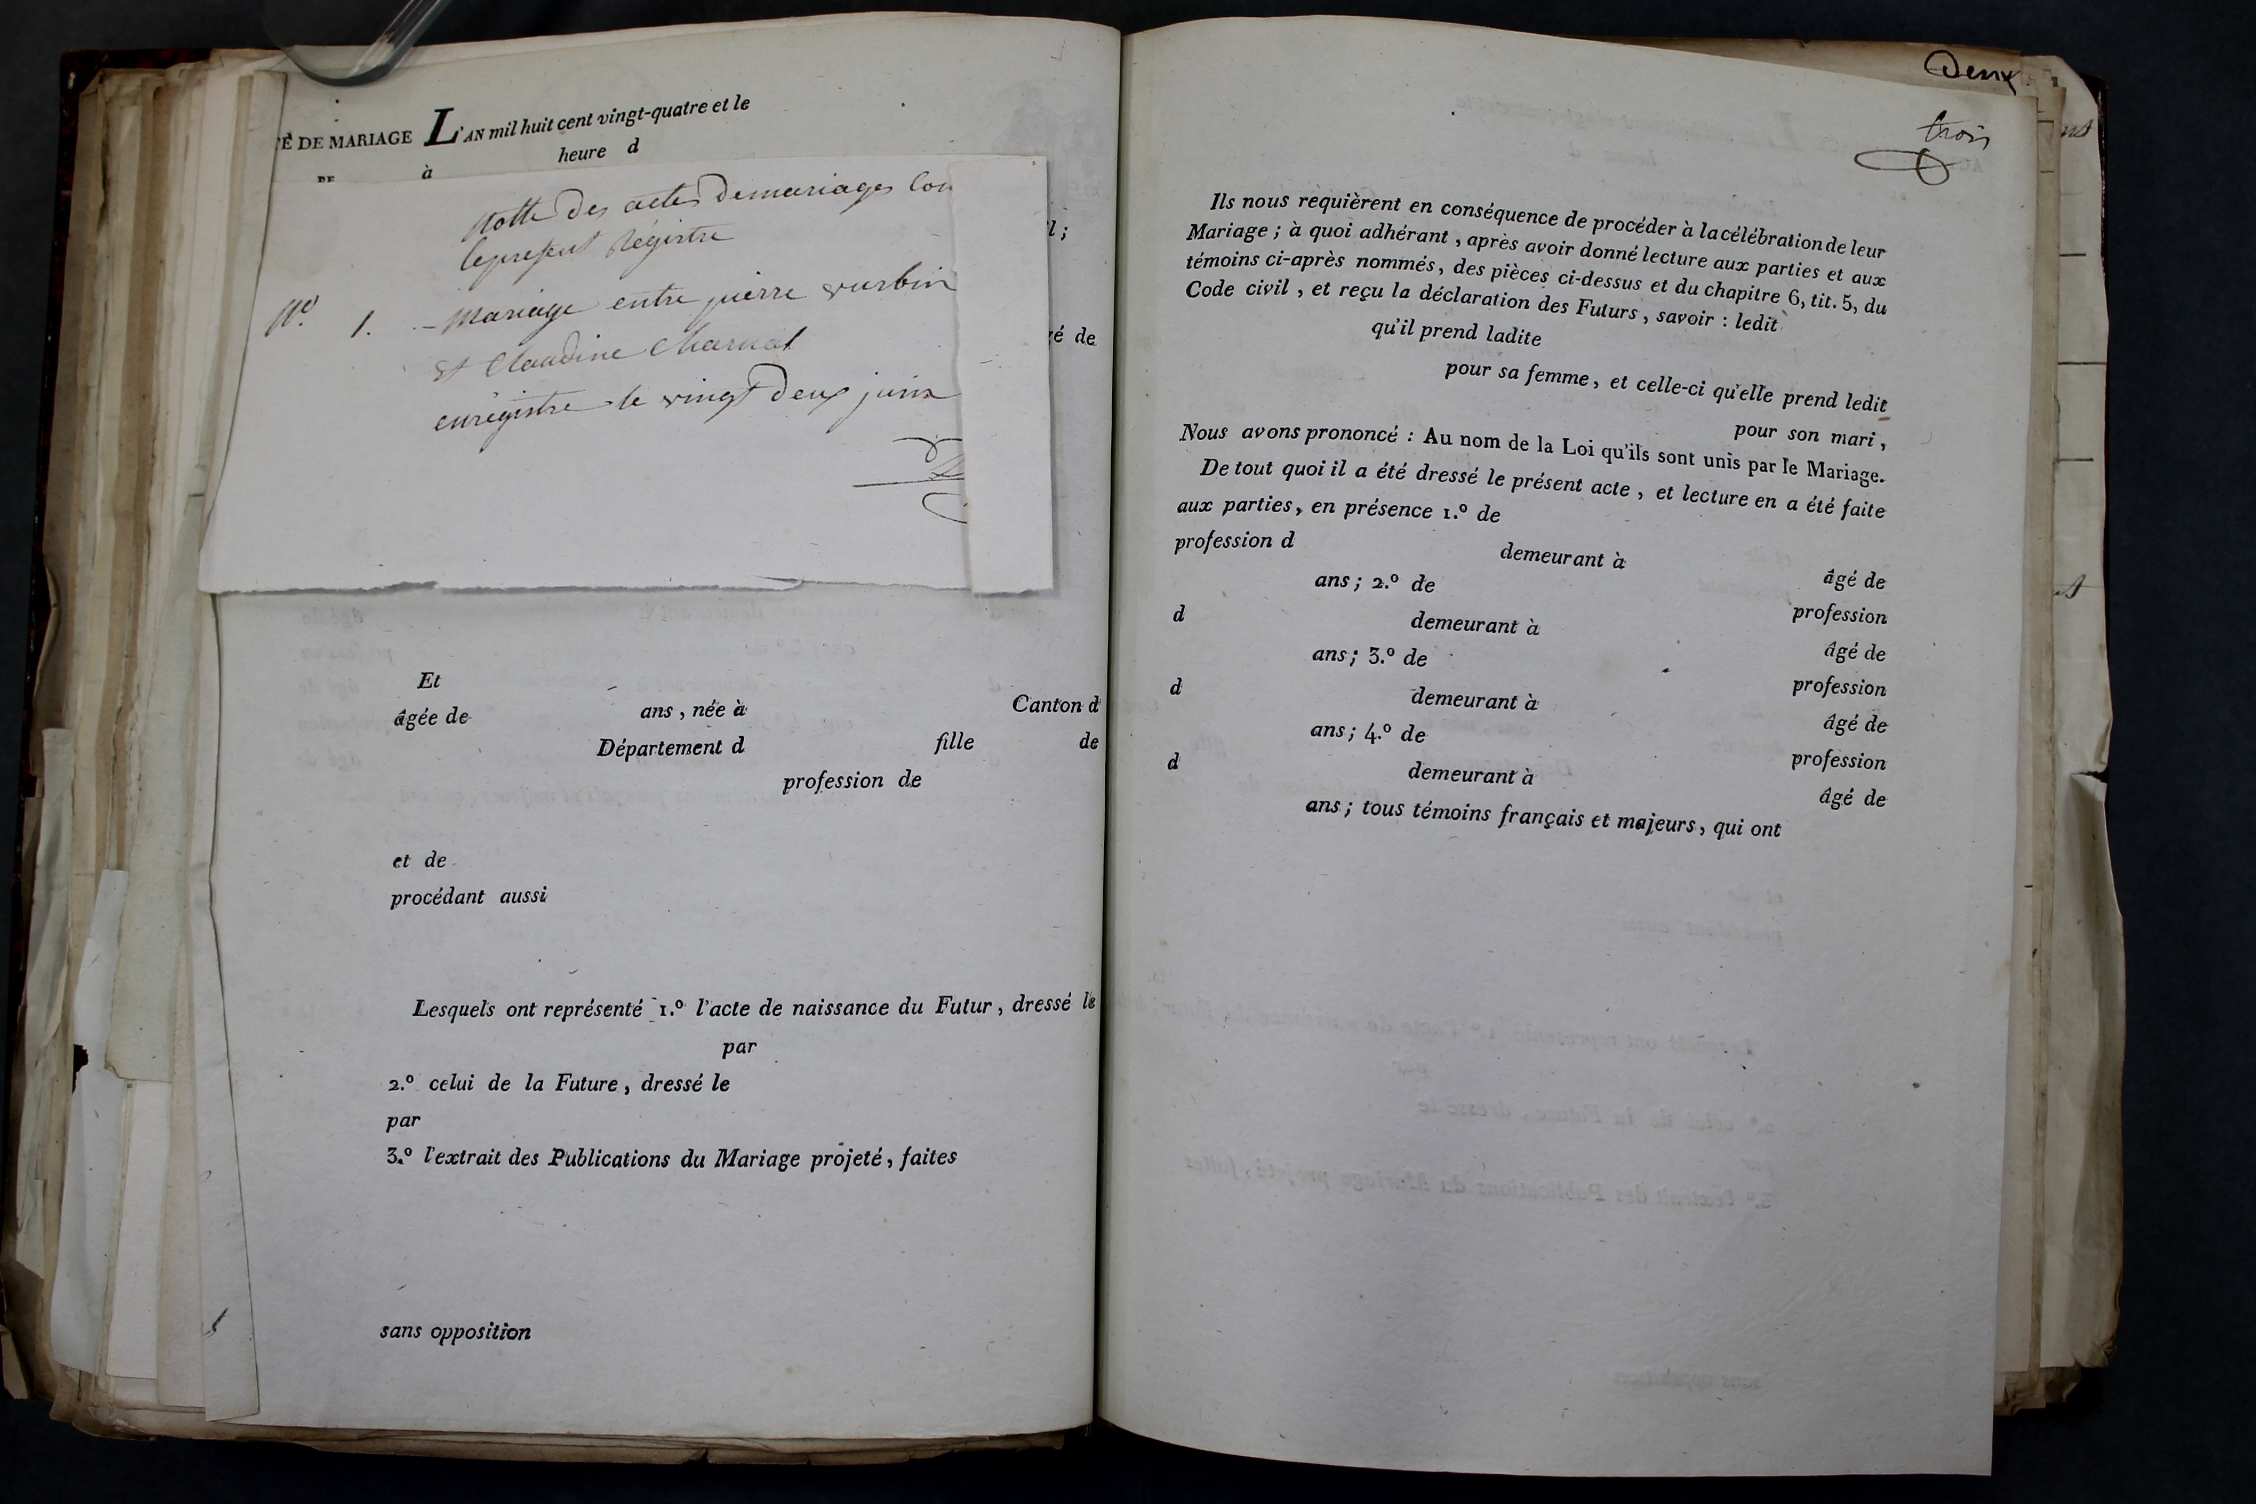 TE DE MARIAGE L'AN mil huit cent vingt-quatre et le
DE à heure d
Notte des actes de mariages Con
le present Régistre
l;
N.º 1. - Mariage entre pierre vurbin
gé de
et Claudine Charnal
enregistre le vingt deux juin
Et
âgée de ans, née à Canton d
Département d fille de
profession de
et de
procédant aussi
Lesquels ont représenté 1.º l'acte de naissance du Futur, dressé le
par
2.º celui de la Future, dressé le
par
3.º l'extrait des Publications du Mariage projeté, faites
sans opposition
Deux
trois
Ils nous requièrent en conséquence de procéder à la célébration de leur
Mariage; à quoi adhérant, après avoir donné lecture aux parties et aux
témoins ci-après nommés, des pièces ci-dessus et du chapitre 6, tit. 5, du
Code civil, et reçu la déclaration des Futurs, savoir: ledit
qu'il prend ladite
pour sa femme, et celle-ci qu'elle prend ledit
pour son mari,
Nous avons prononcé: Au nom de la Loi qu'ils sont unis par le Mariage.
De tout quoi il a été dressé le présent acte, et lecture en a été faite
aux parties, en présence 1.º de
profession d demeurant à âgé de
ans; 2.º de profession
d demeurant à âgé de
ans; 3.º de profession
d demeurant à âgé de
ans; 4.º de profession
d demeurant à âgé de
ans; tous témoins français et majeurs, qui ont